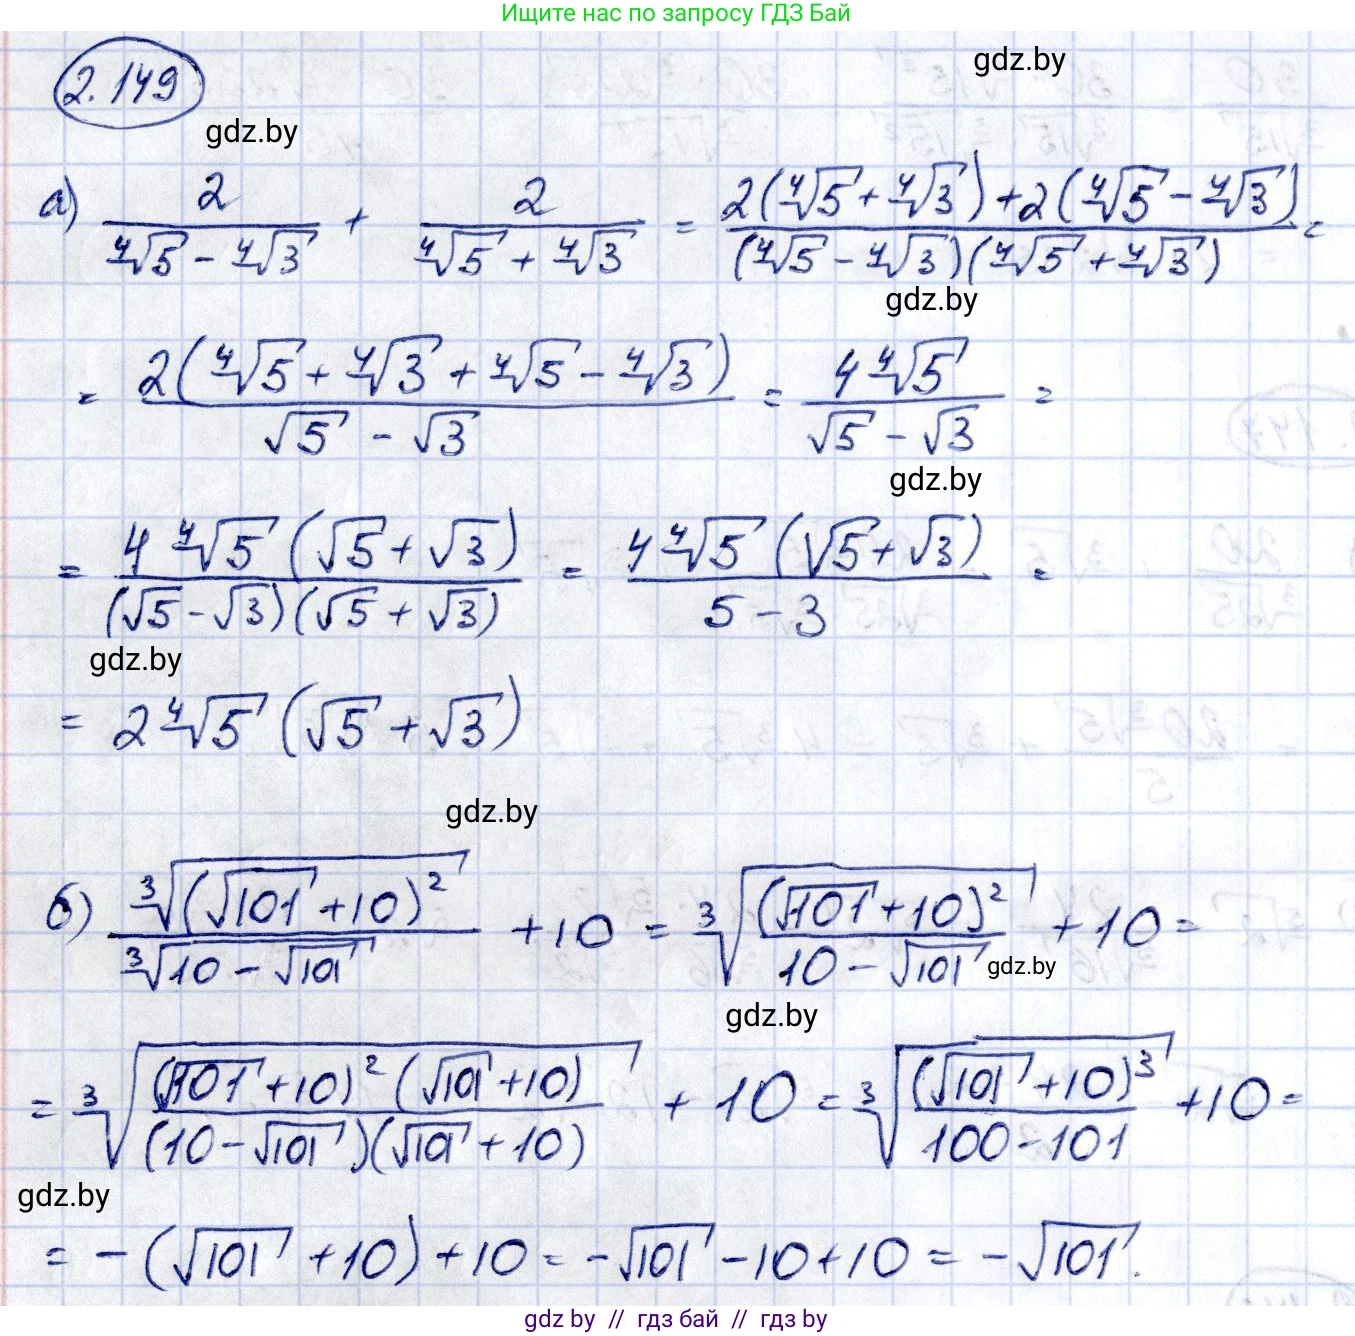 Ищите нас по запросу ГДЗ Бай
2.149
gdz.by
gdz.by
а) 2/(⁴√5 - ⁴√3) + 2/(⁴√5 + ⁴√3) = (2(⁴√5 + ⁴√3) + 2(⁴√5 - ⁴√3))/((⁴√5 - ⁴√3)(⁴√5 + ⁴√3)) =
gdz.by
= 2(⁴√5 + ⁴√3 + ⁴√5 - ⁴√3)/(√5 - √3) = 4⁴√5/(√5 - √3) =
gdz.by
= 4⁴√5(√5 + √3)/((√5 - √3)(√5 + √3)) = 4⁴√5(√5 + √3)/(5 - 3) =
gdz.by
= 2⁴√5(√5 + √3)
gdz.by
б) ³√((√101 + 10)²)/³√(10 - √101) + 10 = ³√((√101 + 10)²/(10 - √101)) + 10 =
gdz.by
gdz.by
= ³√((√101 + 10)²(√101 + 10)/((10 - √101)(√101 + 10))) + 10 = ³√((√101 + 10)³/(100 - 101)) + 10 =
gdz.by
= -(√101 + 10) + 10 = -√101 - 10 + 10 = -√101.
gdz.by // гдз бай // гдз by